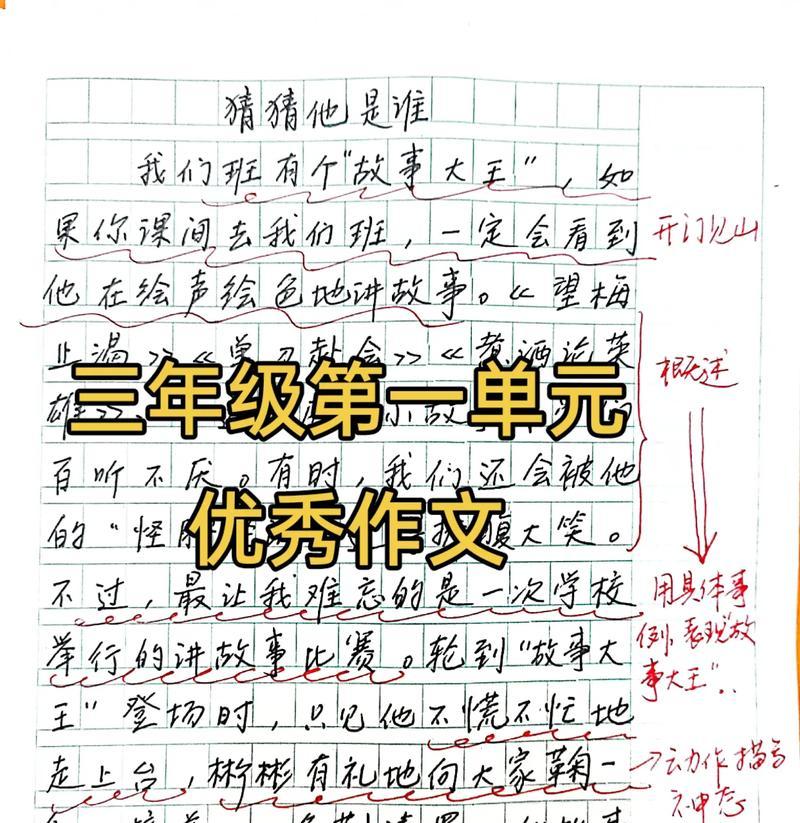 猜猜他是谁
我们班有个"故事大王"，如
果你课间去我们班，一定会看到
开门见山
他在绘声绘色地讲故事。《望梅
止渴》《单刀赴会》《煮酒论英
概述
雄》
三年级第一单元
百听不厌。有时，我们还会被他
的"怪
腹大笑。
优秀作文
不过，最让我难忘的是一次学校
用具体事
例，表现故
事大王"..
举行的讲故事比赛。轮到"故事大
王"登场时，只见他不慌不忙地
走上台，彬彬有礼地向大家鞠一
→动作描写
神态